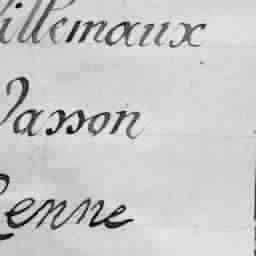 Villemaux
Vasson
Renne